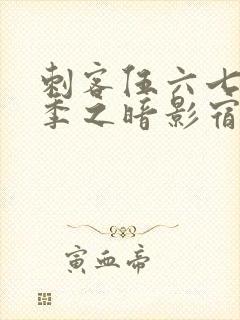 刺客伍六七
季之暗影宿
寅血帝